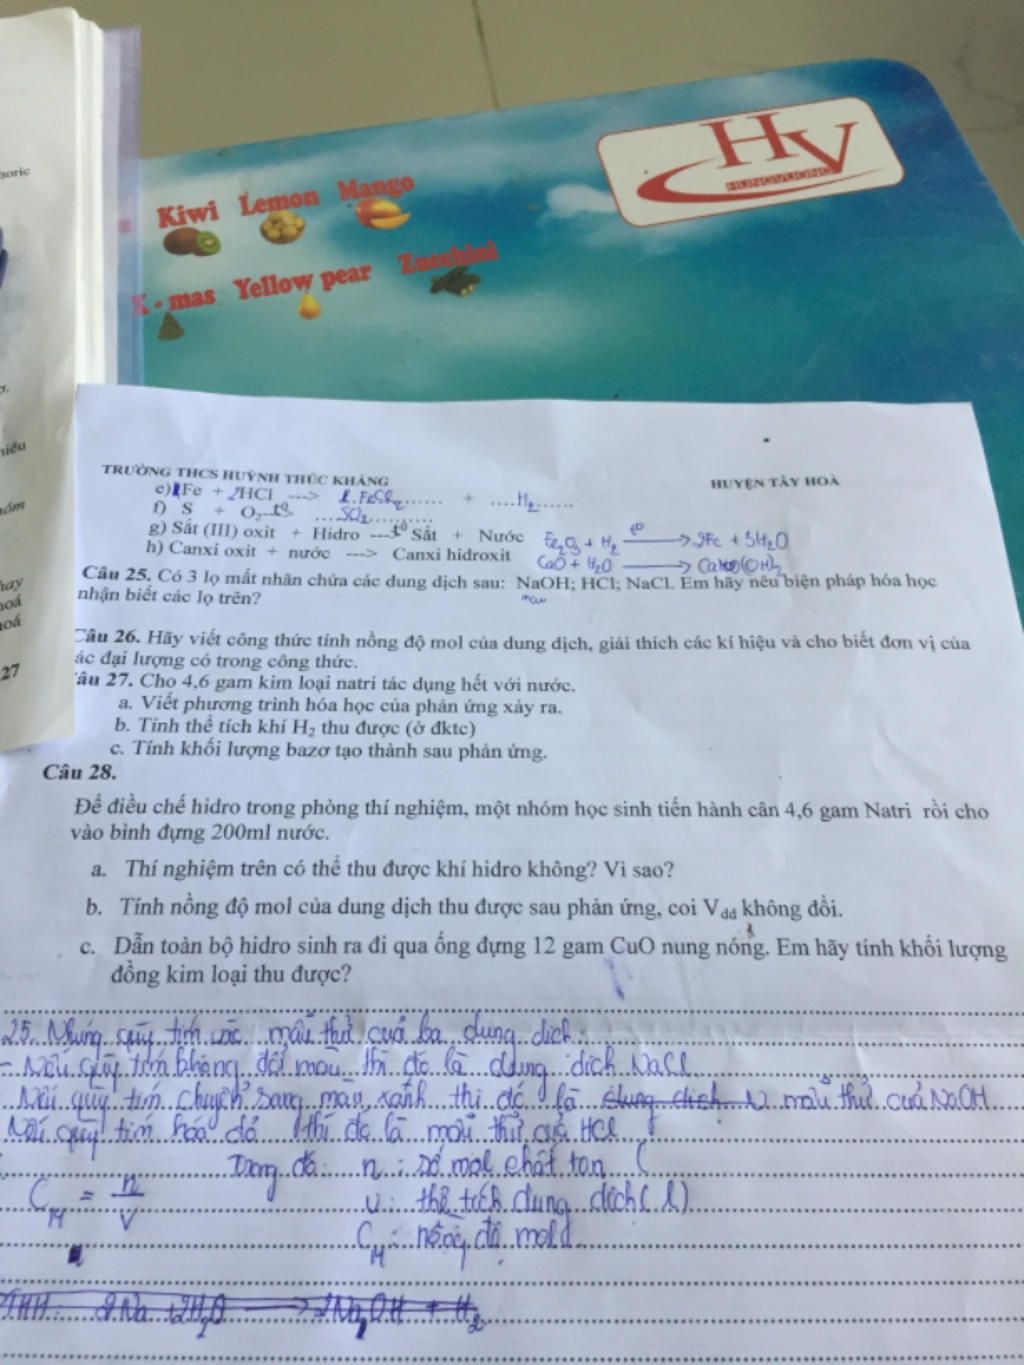 boric
Kiwi Lemon Mango
HV
HUNGVUONG
X - mas Yellow pear Zucchini
hiếu
hay
hoá
hoá
27
TRƯỜNG THCS HUỲNH THÚC KHÁNG HUYỆN TÂY HOÀ
e) Fe + 2HCl ---> FeCl₂ ...... + ....H₂......
f) S + O₂ --t°-> ....SO₂..........
g) Sắt (III) oxit + Hidro ---t°-> Sắt + Nước Fe₂O₃ + H₂ --t°--> 2Fe + 3H₂O
h) Canxi oxit + nước ---> Canxi hidroxit CaO + H₂O ---> Ca(OH)₂
Câu 25. Có 3 lọ mất nhãn chứa các dung dịch sau: NaOH; HCl; NaCl. Em hãy nêu biện pháp hóa học
nhận biết các lọ trên?
Câu 26. Hãy viết công thức tính nồng độ mol của dung dịch, giải thích các kí hiệu và cho biết đơn vị của
ác đại lượng có trong công thức.
âu 27. Cho 4,6 gam kim loại natri tác dụng hết với nước.
a. Viết phương trình hóa học của phản ứng xảy ra.
b. Tính thể tích khí H₂ thu được (ở đktc)
c. Tính khối lượng bazơ tạo thành sau phản ứng.
Câu 28.
Để điều chế hidro trong phòng thí nghiệm, một nhóm học sinh tiến hành cân 4,6 gam Natri rồi cho
vào bình đựng 200ml nước.
a. Thí nghiệm trên có thể thu được khí hidro không? Vì sao?
b. Tính nồng độ mol của dung dịch thu được sau phản ứng, coi Vdd không đổi.
c. Dẫn toàn bộ hidro sinh ra đi qua ống đựng 12 gam CuO nung nóng. Em hãy tính khối lượng
đồng kim loại thu được?
25. Nhúng quỳ tím vào mẫu thử của ba dung dịch:
- Nếu quỳ tím không đổi màu thì đó là dung dịch NaCl
Nếu quỳ tím chuyển sang màu xanh thì đó là dung dịch mẫu thử của NaOH
Nếu quỳ tím hóa đỏ thì đó là mẫu thử của HCl
Trong đó: n : số mol chất tan (
C_M = n/V v: thể tích dung dịch (l)
C_M : nồng độ mol
PTHH: 2Na + 2H₂O → 2NaOH + H₂